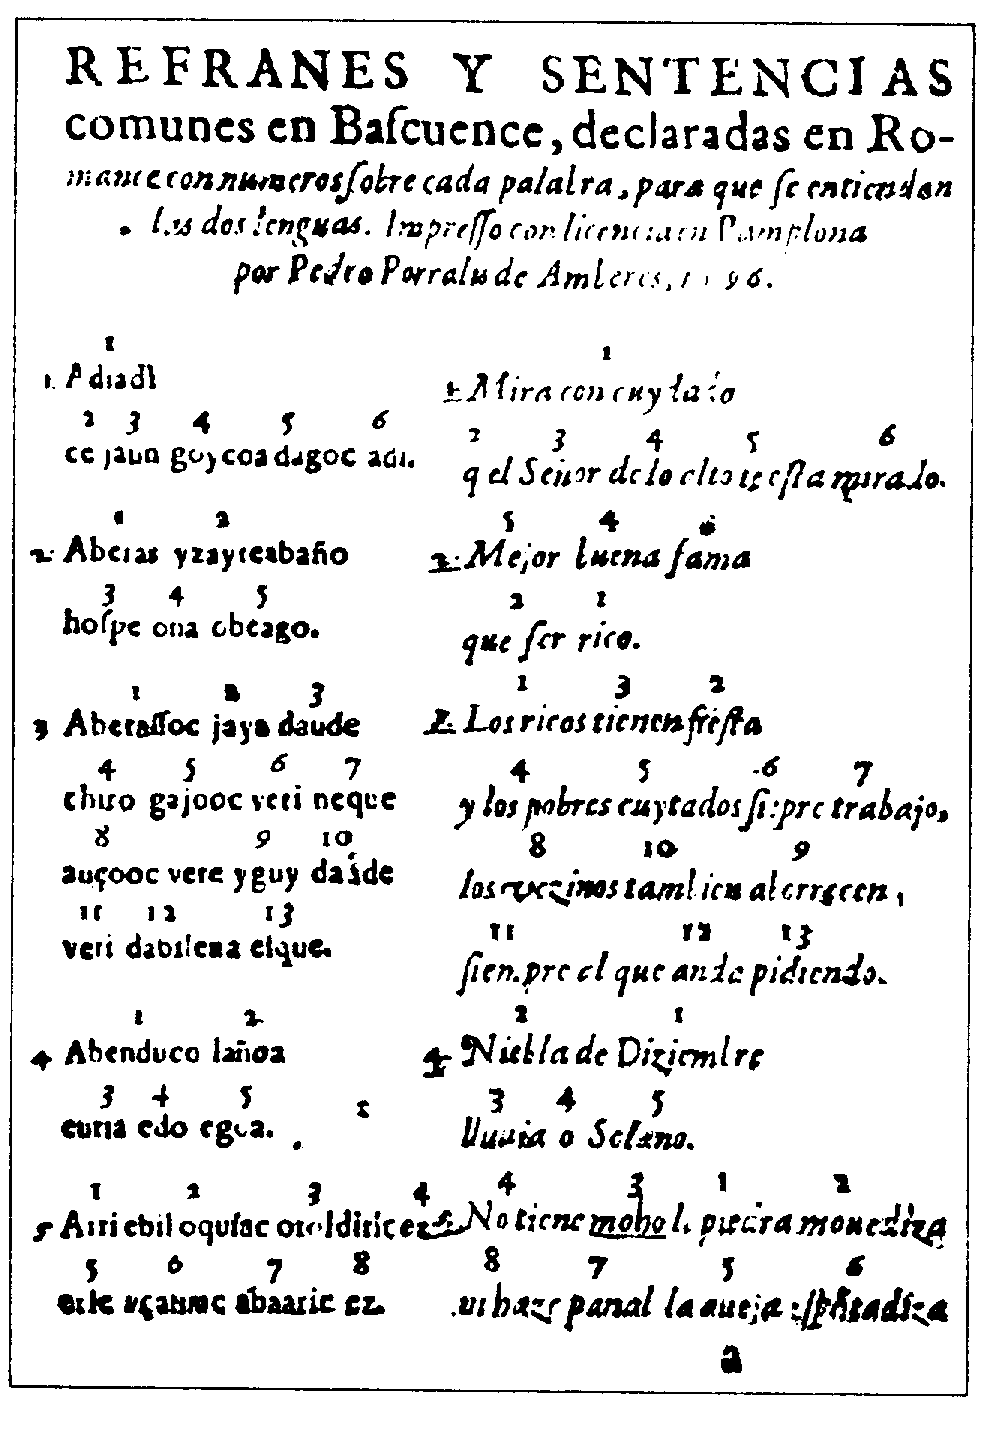 REFRANES Y SENTENCIAS
comunes en Baſcuence, declaradas en Ro-
mance con numeros ſobre cada palabra, para que ſe entiendan
las dos lenguas. Impreſſo con licencia en Pamplona
por Pedro Porralis de Amberes, 1596.
1
1. Adiadi
2 3 4 5 6
ce jaun goycoa dagoc adi.
1
1. Mira con cuydado
2 3 4 5 6
q el Señor de lo alto te eſta mirādo.
1 2
2. Aberas yzaytea baño
3 4 5
hoſpe ona obeago.
5 4
2. Mejor buena fama
2 1
que ſer rico.
1 2 3
3 Aberaſſoc jaya daude
4 5 6 7
chiro gajooc veti neque
8 9 10
auçooc vere yguy daǐde
11 12 13
veti dabilena eſque.
1 3 2
Los ricos tienen fieſta
4 5 6 7
y los pobres cuytados ſiēpre trabajo,
8 10 9
los vezinos tambien aborrecen,
11 12 13
ſienpre el que anda pidiendo.
1 2
4 Abenduco lañoa
3 4 5
euria edo egoa.
2 1
4 Niebla de Diziembre
3 4 5
lluuia o Solano.
1 2 3 4
5 Arri ebil oquſac oroldiric ez
5 6 7 8
erle abaaric ez.
4 3 1 2
No tiene moho la piedra mouediza
8 7 5 6
ni haze panal la aueja
a